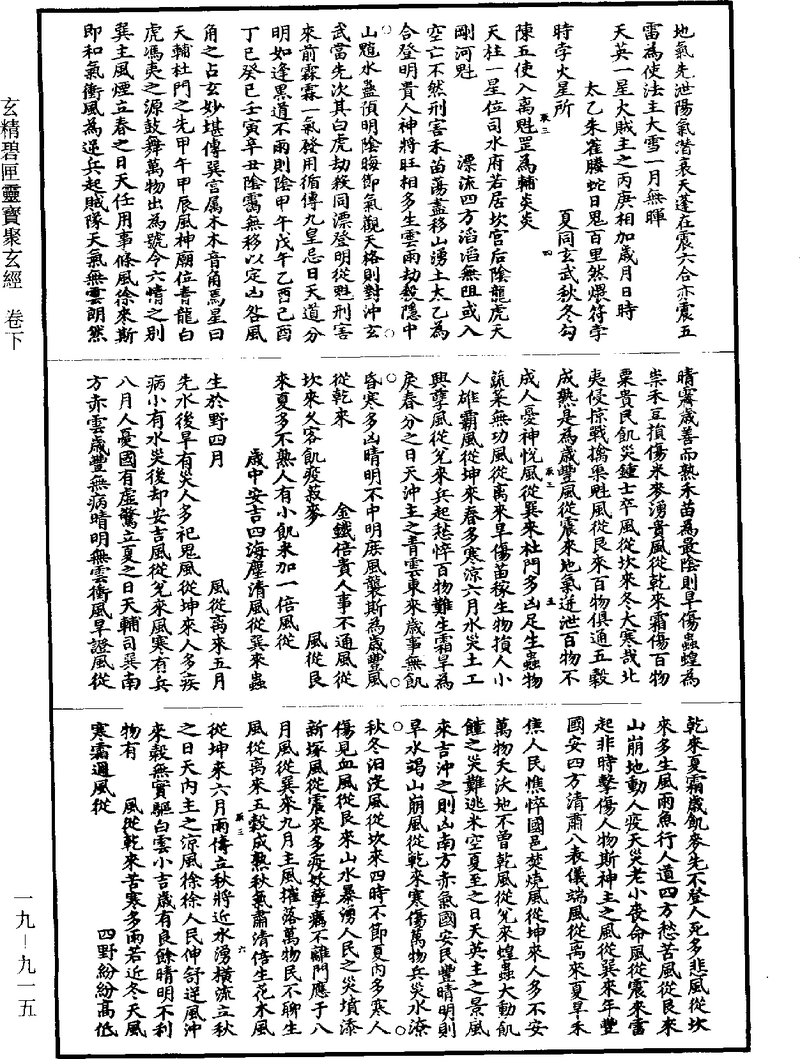 玄精碧匣靈寶聚玄經　卷下
地氣先泄陽氣潛衰天蓬在震六合亦震五
雷為使法主大雪一月無暉
天英一星火賊主之丙庚相加歲月日時
太乙朱雀螣蛇日鬼百里然煨符孛
時孛火星所　夏同玄武秋冬勾
陳五使入离魁罡為輔炎炎
天柱一星位司水府若居坎宮后陰龍虎天
剛河魁　漂流四方滔滔無阻或入
空亡不然刑害禾苗蕩盡移山湧土太乙為
合登明貴人神將旺相多生雲雨劫殺隱中
山魈水蠱預明陰晦節氣觀天格則對沖玄
武當先次其白虎劫殺同漂登明從魁刑害
來前霖霖一氣發用循傳九皇忌日天道分
明如逢黑道不雨則陰甲午戊午乙酉己酉
丁巳癸巳壬寅辛丑陰靄無移以定凶咎風
角之占玄妙堪傳巽宮属木木音角焉星曰
天輔杜門之先甲午甲辰風神廟位青龍白
虎馮夷之源鼓舞萬物出為號令六情之別
巽主風煙立春之日天任用事條風徐來斯
即和氣衝風為逆兵起賊隊天氣無雲朗然
晴霽歲善而熟禾苗為最陰則旱傷蟲蝗為
祟禾豆損傷米麥湧貴風從乾來霜傷百物
粟貴民飢災鍾士卒風從坎來冬大寒哉北
夷侵惊戰擒渠魁風從艮來百物俱通五穀
成熟是為歲豐風從震來地氣迸泄百物不
成人憂神悅風從巽來杜門多凶足生蟲物
蔬菜無功風從离來旱傷苗稼生物損人小
人雄霸風從坤來春多寒涼六月水災土工
興孽風從兌來兵起愁悴百物難生霜旱為
戾春分之日天沖主之青雲東來歲事無飢
昏寒多凶晴明不中明庶風襲斯為歲豐風
從乾來　金鐵倍貴人事不通風從
坎來久客飢疫菽麥　風從艮
來夏多不熟人有小飢米加一倍風從
歲中安吉四海塵清風從巽來蟲
生於野四月　風從离來五月
先水後旱有災人多祀鬼風從坤來人多疾
病小有水災後却安吉風從兌來風寒有兵
八月人憂國有虛驚立夏之日天輔司巽南
方赤雲歲豐無病晴明無雲衝風旱證風從
乾來夏霜歲飢麥先不登人死多悲風從坎
來多生風雨魚行人道四方愁苦風從艮來
山崩地動人疫天災老小喪命風從震來雷
起非時擊傷人物斯神主之風從巽來年豐
國安四方清肅八表儀端風從离來夏旱禾
焦人民憔悴國邑焚燒風從坤來人多不安
萬物夭沃地不曾乾風從兌來蝗蟲大動飢
饉之災難逃米空夏至之日天英主之景風
來吉沖之則凶南方赤氣國安民豐晴明則
旱水竭山崩風從乾來寒傷萬物兵災水潦
秋冬汨沒風從坎來四時不節夏內多寒人
傷見血風從艮來山水暴湧人民之災墳漆
新塚風從震來多疫妖孽癘不離門應于八
月風從巽來九月主風摧落萬物民不聊生
風從离來五穀成熟秋氣肅清倍生花木風
從坤來六月雨儔立秋將近水湧橫流立秋
之日天內主之涼風徐徐人民伸舒逆風沖
來穀無實驅白雲小吉歲有良餘晴明不利
物有　風從乾來苦寒多雨若近冬天風
寒霜過風從　四野紛紛高低
一九－九一五